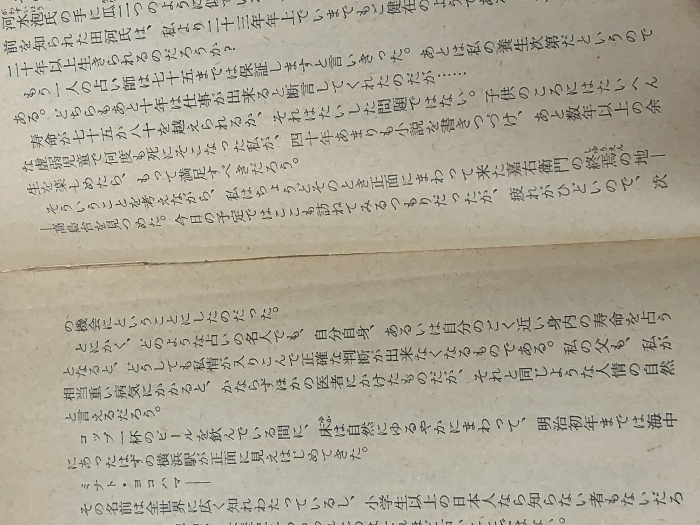 河水泡氏の手に瓜二つのように
前を知られた田河氏は、私より二十三年年上でいまでもご健在のよう
二十年以上生きられるのだろうか？
もう一人の占い師は七十五までは保証しますと言いきった。あとは私の養生次第だというので
ある。どちらもあと十年は仕事が出来ると断言してくれたのだが……
寿命が七十五か八十を越えられるか、それはたいした問題ではない。子供のころにはたいへん
な虚弱児童で何度も死にそこなった私が、四十年あまりも小説を書きつづけ、あと数年以上の余
生を楽しめたら、もって満足すべきだろう。
そういうことを考えながら、私はちょうどそのとき正面にまわって来た嘉右衛門の終焉の地―
―高島台を見つめた。今日の予定ではここも訪ねてみるつもりだったが、疲れがひどいので、次
の機会にということにしたのだった。
とにかく、どのような占いの名人でも、自分自身、あるいは自分のごく近い身内の寿命を占う
となると、どうしても私情が入りこんで正確な判断が出来なくなるものである。私の父も、私が
相当重い病気にかかると、かならずほかの医者にかけたものだが、それと同じような人情の自然
と言えるだろう。
コップ一杯のビールを飲んでいる間に、床は自然にゆるやかにまわって、明治初年までは海中
にあったはずの横浜駅が正面に見えはじめてきた。
ミナト・ヨコハマ――
その名前は全世界に広く知れわたっているし、小学生以上の日本人なら知らない者もないだろ